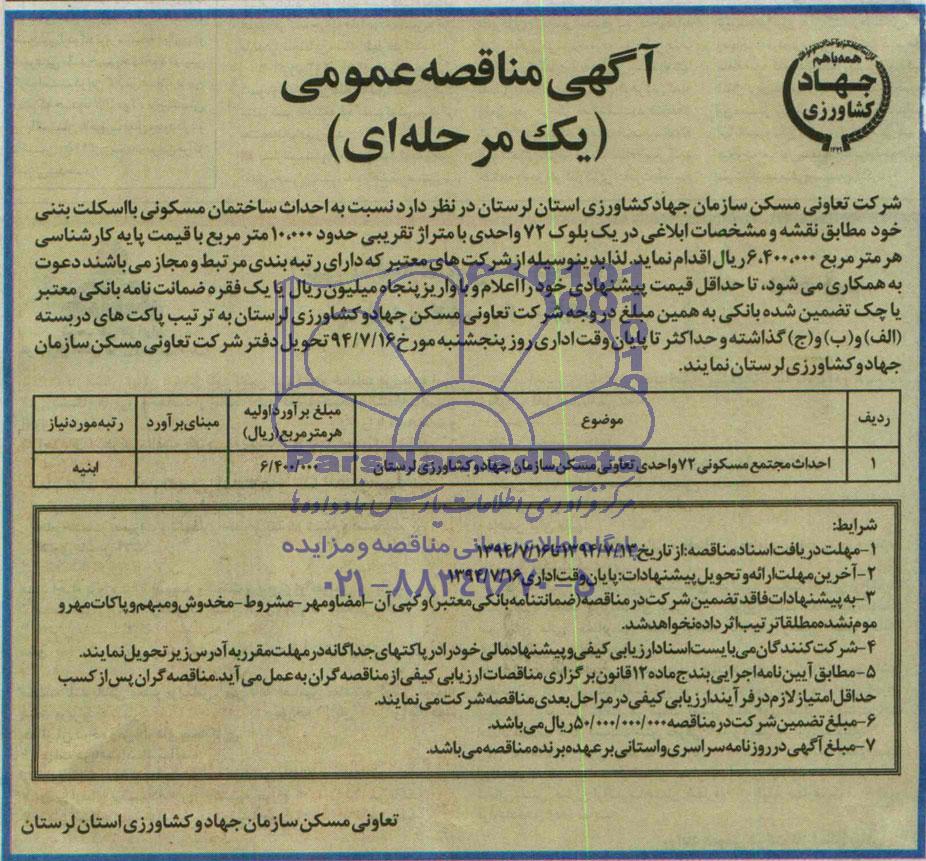 همه با هم
جهاد
کشاورزی
آگهی مناقصه عمومی
(یک مرحله‌ای)
شرکت تعاونی مسکن سازمان جهاد کشاورزی استان لرستان در نظر دارد نسبت به احداث ساختمان مسکونی با اسکلت بتنی
خود مطابق نقشه و مشخصات ابلاغی در یک بلوک ۷۲ واحدی با متراژ تقریبی حدود ۱۰،۰۰۰ متر مربع با قیمت پایه کارشناسی
هر متر مربع ۶،۴۰۰،۰۰۰ ریال اقدام نماید. لذا بدینوسیله از شرکت های معتبر که دارای رتبه بندی مرتبط و مجاز می باشند دعوت
به همکاری می شود، تا حداقل قیمت پیشنهادی خود را اعلام و با واریز پنجاه میلیون ریال یا یک فقره ضمانت نامه بانکی معتبر
یا چک تضمین شده بانکی به همین مبلغ در وجه شرکت تعاونی مسکن جهاد و کشاورزی لرستان به ترتیب پاکت های دربسته
(الف) و (ب) و (ج) گذاشته و حداکثر تا پایان وقت اداری روز پنجشنبه مورخ ۹۴/۷/۱۶ تحویل دفتر شرکت تعاونی مسکن سازمان
جهاد و کشاورزی لرستان نمایند.
ردیف موضوع مبلغ برآورد اولیه هر متر مربع (ریال) مبنای برآورد رتبه مورد نیاز
۱ احداث مجتمع مسکونی ۷۲ واحدی تعاونی مسکن سازمان جهاد و کشاورزی لرستان ۶/۴۰۰/۰۰۰ ابنیه
ParsNamadData
مرکز فرآوری اطلاعات پارس نماد داده ها
پایگاه اطلاع رسانی مناقصه و مزایده
۰۲۱-۸۸۳۴۹۶۷۰-۵
شرایط:
۱-مهلت دریافت اسناد مناقصه: از تاریخ ۱۳۹۴/۷/۱۳ تا ۱۳۹۴/۷/۱۶
۲-آخرین مهلت ارائه و تحویل پیشنهادات: پایان وقت اداری ۱۳۹۴/۷/۱۶
۳-به پیشنهادات فاقد تضمین شرکت در مناقصه (ضمانتنامه بانکی معتبر) و کپی آن-امضا و مهر-مشروط-مخدوش و مبهم و پاکات مهر و
موم نشده مطلقا ترتیب اثر داده نخواهد شد.
۴-شرکت کنندگان می بایست اسناد ارزیابی کیفی و پیشنهاد مالی خود را در پاکتهای جداگانه در مهلت مقرر به آدرس زیر تحویل نمایند.
۵-مطابق آیین نامه اجرایی بند ج ماده ۱۲ قانون برگزاری مناقصات ارزیابی کیفی از مناقصه گران به عمل می آید. مناقصه گران پس از کسب
حداقل امتیاز لازم در فرآیند ارزیابی کیفی در مراحل بعدی مناقصه شرکت می نمایند.
۶-مبلغ تضمین شرکت در مناقصه ۵۰/۰۰۰/۰۰۰/۰۰۰ ریال می باشد.
۷-مبلغ آگهی در روزنامه سراسری و استانی بر عهده برنده مناقصه می باشد.
تعاونی مسکن سازمان جهاد و کشاورزی استان لرستان